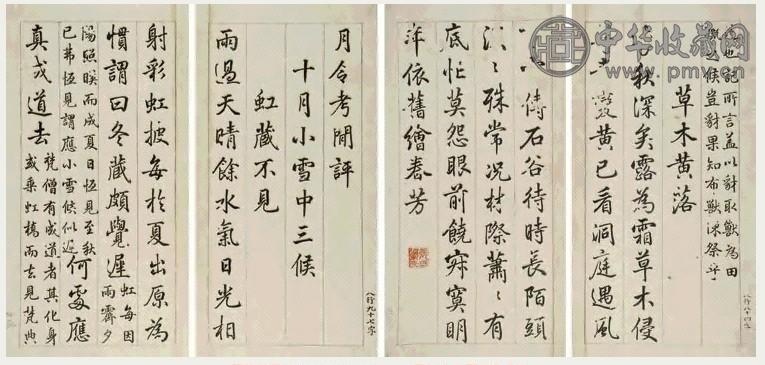 中华收藏网
www.pmv.cn
也記所言蓋以豺取獸為田
候豈豺果知布獸以祭乎
草木黃落
秋深矣露為霜草木侵
黃已看洞庭遇風
八行八十四字
傳石谷待時長陌頭
殊常況材際蕭〻有
底忙莫怨眼前饒寂寞明
年依舊繪春芳
月令考閒評
十月小雪中三候
虹藏不見
雨過天晴餘水氣日光相
八行九十七字
射彩虹披每於夏出原為
慣謂曰冬藏頗覺遲虹每因
雨霽夕
陽照映而成夏日恆見至秋
已弗恆見謂應小雪候似近何處應
真成道去梵僧有成道者其化身
或乘虹橋而去見梵典